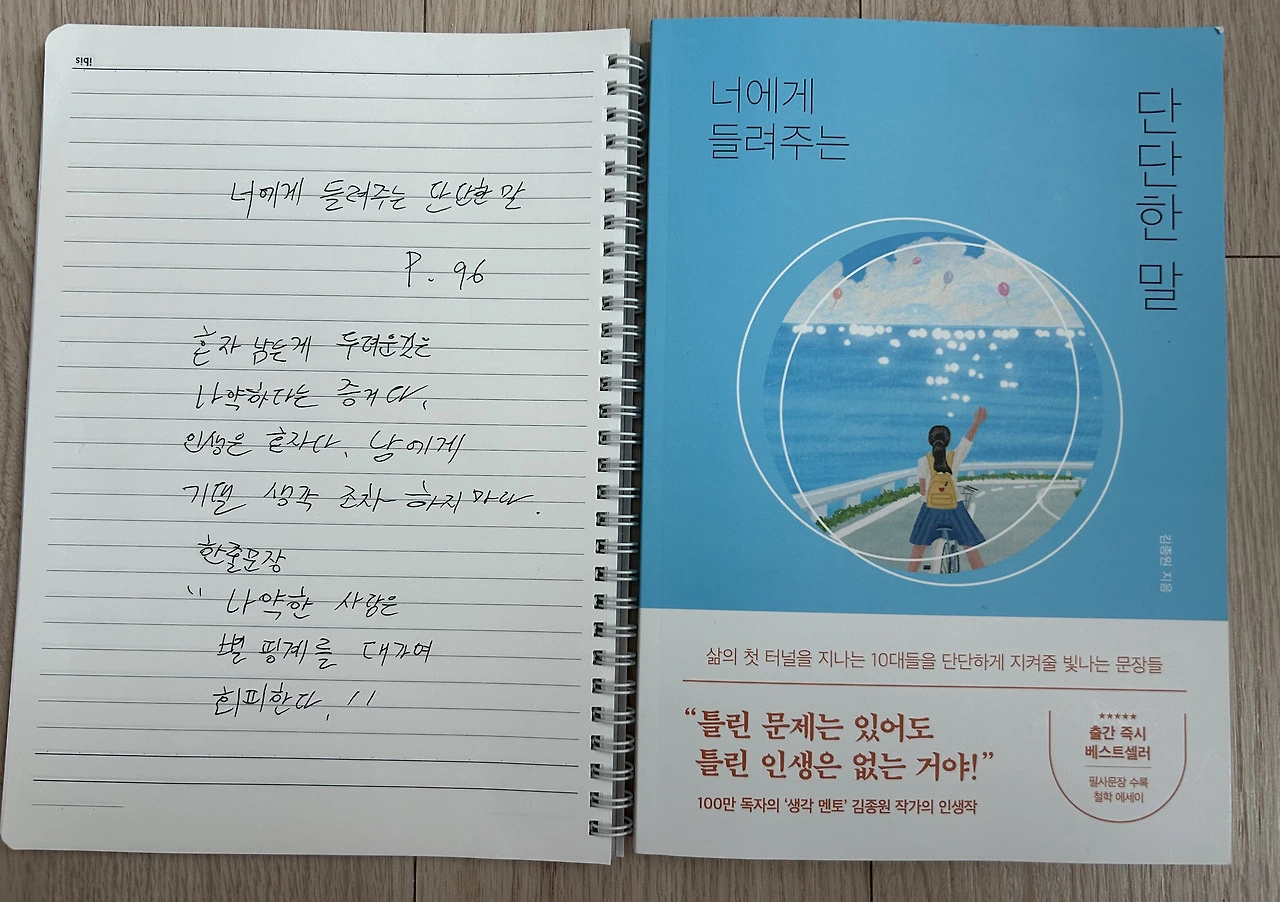 너에게 들려주는 단단한 말
P. 96
혼자 남는게 두려운것은
나약하다는 증거다.
인생은 혼자다. 남에게
기댈 생각 조차 하지 마라.
한줄문장
" 나약한 사람은
별 핑계를 대가며
회피한다. "
너에게
들려주는
단단한 말
김종원 지음
삶의 첫 터널을 지나는 10대들을 단단하게 지켜줄 빛나는 문장들
“틀린 문제는 있어도
틀린 인생은 없는 거야!”
100만 독자의 ‘생각 멘토’ 김종원 작가의 인생작
★★★★★
출간 즉시
베스트셀러
필사문장 수록
철학 에세이